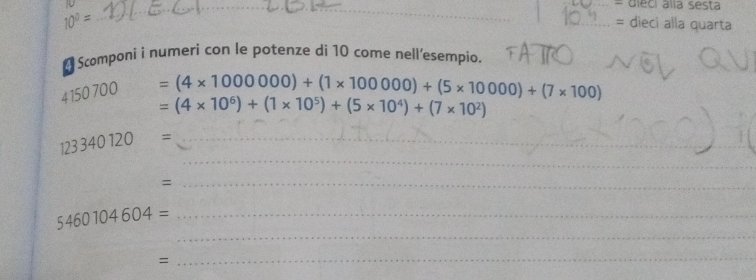 10⁰ =
= dieci alla sesta
10⁴ = dieci alla quarta
4 Scomponi i numeri con le potenze di 10 come nell'esempio. FATTO NEL QU
4 150 700 = (4 × 1 000 000) + (1 × 100 000) + (5 × 10 000) + (7 × 100)
= (4 × 10⁶) + (1 × 10⁵) + (5 × 10⁴) + (7 × 10²)
123 340 120 =
=
5 460 104 604 =
=